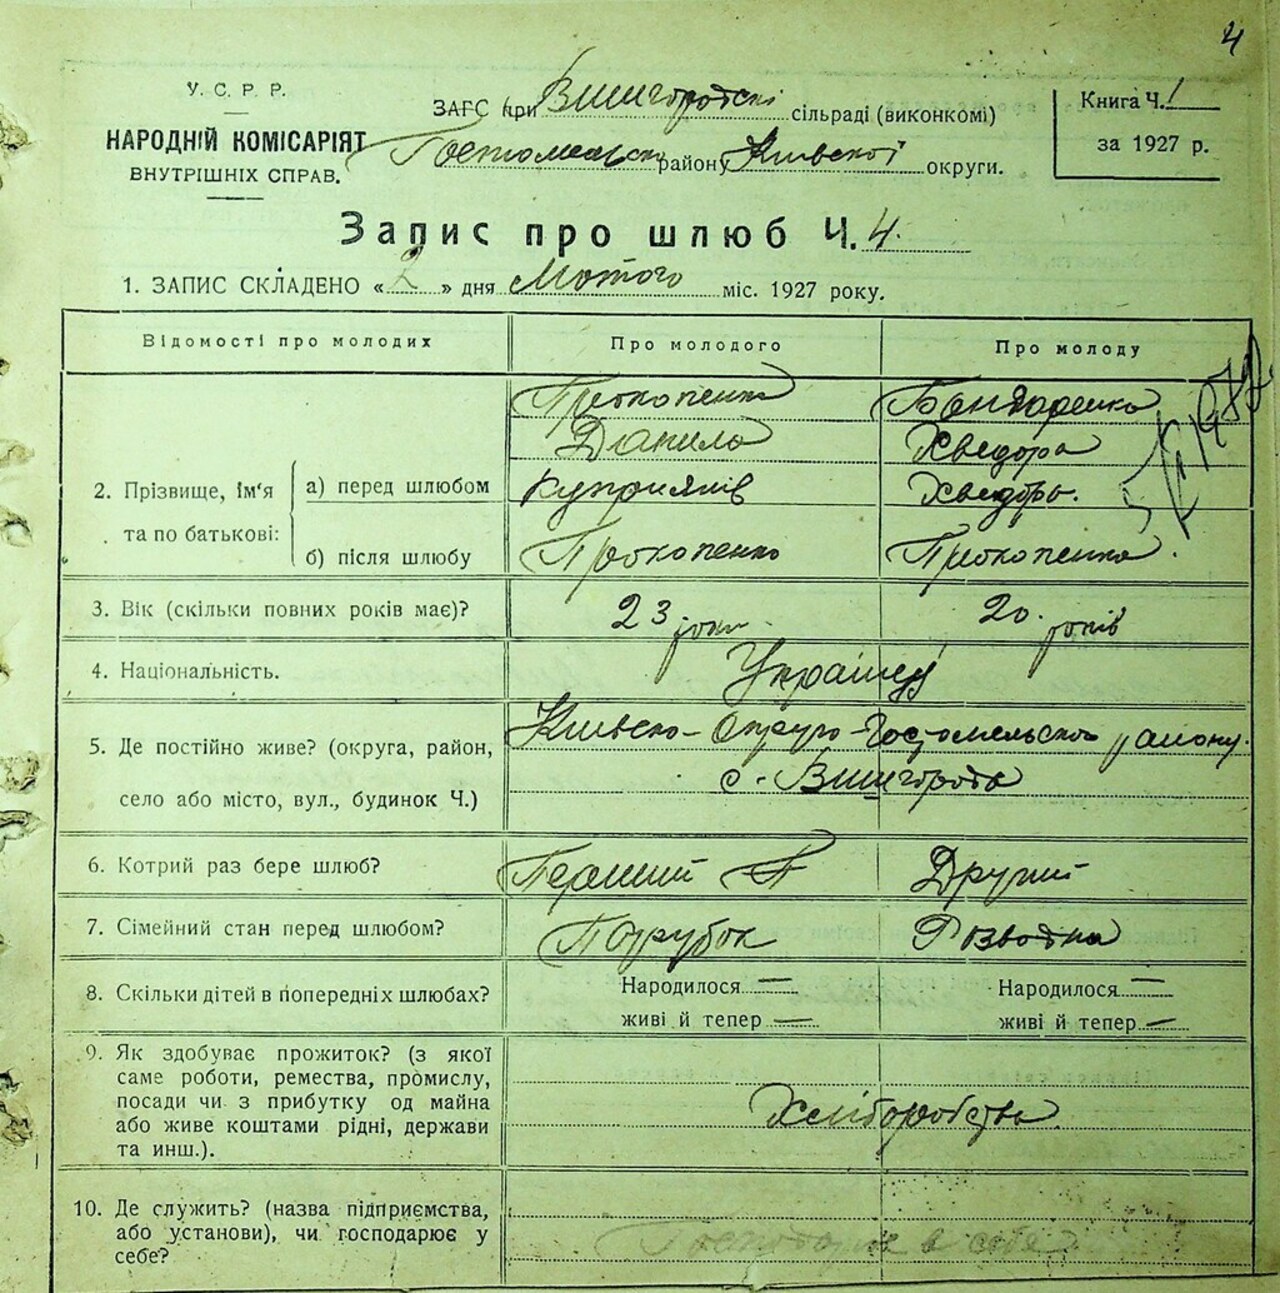 4
У. С. Р. Р.
НАРОДНІЙ КОМІСАРІЯТ
ВНУТРІШНІХ СПРАВ.
ЗАГС при Вишгородскі сільраді (виконкомі)
Гостомельско району Київскої округи.
Книга Ч. 1
за 1927 р.
Запис про шлюб Ч. 4.
1. ЗАПИС СКЛАДЕНО «2» дня Лютого міс. 1927 року.
Відомості про молодих Про молодого Про молоду
Прокопенко Бондаренко
Данило Хведора
2. Прізвище, ім'я та по батькові: а) перед шлюбом Куприянів Хведорів.
б) після шлюбу Прокопенко Прокопенко.
3. Вік (скільки повних років має)? 23 роки 20. років
4. Національність. Українці
5. Де постійно живе? (округа, район, Київско-Округо-Гостомельского району.
село або місто, вул., будинок Ч.) с. Вишгорода
6. Котрий раз бере шлюб? Перший Другий
7. Сімейний стан перед шлюбом? Парубок Розводна
8. Скільки дітей в попередніх шлюбах? Народилося — Народилося —
живі й тепер — живі й тепер —
9. Як здобуває прожиток? (з якої
саме роботи, ремества, промислу,
посади чи з прибутку од майна Хліборобства.
або живе коштами рідні, держави
та инш.).
10. Де служить? (назва підприємства,
або установи), чи господарює у Господарює в себе
себе?